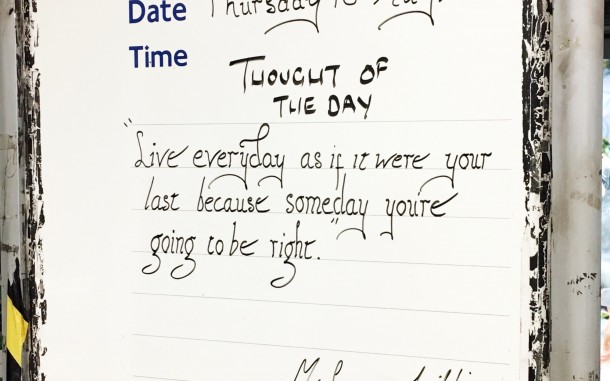 Date Thursday
Time
THOUGHT OF
THE DAY
"Live everyday as if it were your
last because someday you're
going to be right."